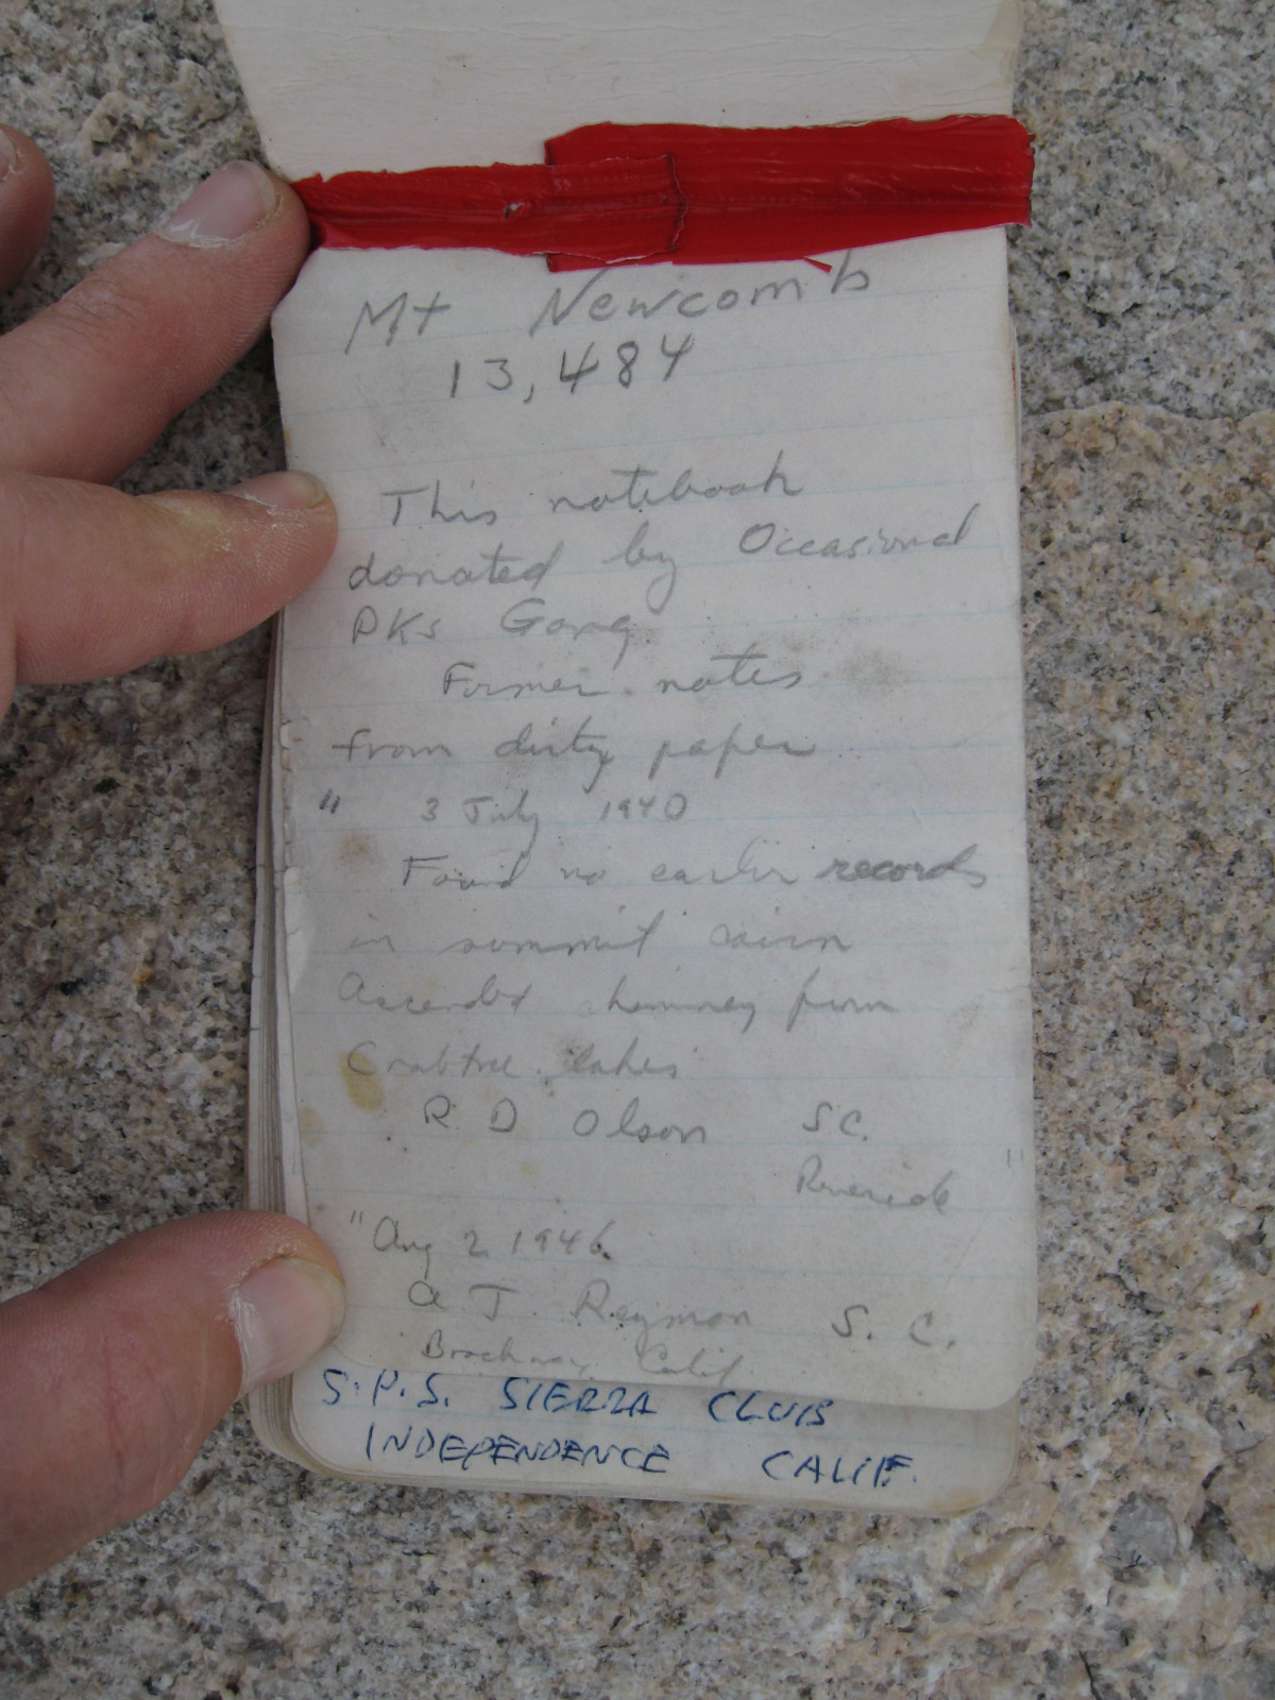 Mt Newcomb
13,484
This notebook
donated by Occasional
PKs Gang
Former notes
from dirty paper
" 3 July 1940
Found no earlier records
in summit cairn
Ascended chimney from
Crabtree lakes
R D Olson SC.
Riverside "
" Aug 2 1946
A J. Reyman S. C.
Brockway Calif.
S.P.S. SIERRA CLUB
INDEPENDENCE CALIF.